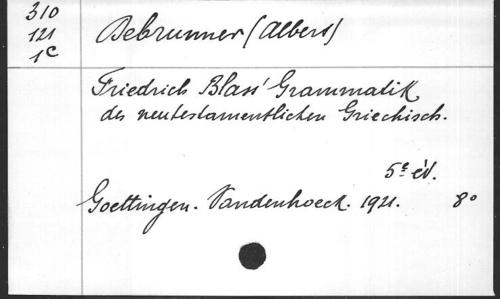 310
121
1c
Debrunner (Albert)
Friedrich Blass' Grammatik
des neutestamentlichen Griechisch.
5e éd.
Goettingen. Vandenhoeck. 1921. 8°